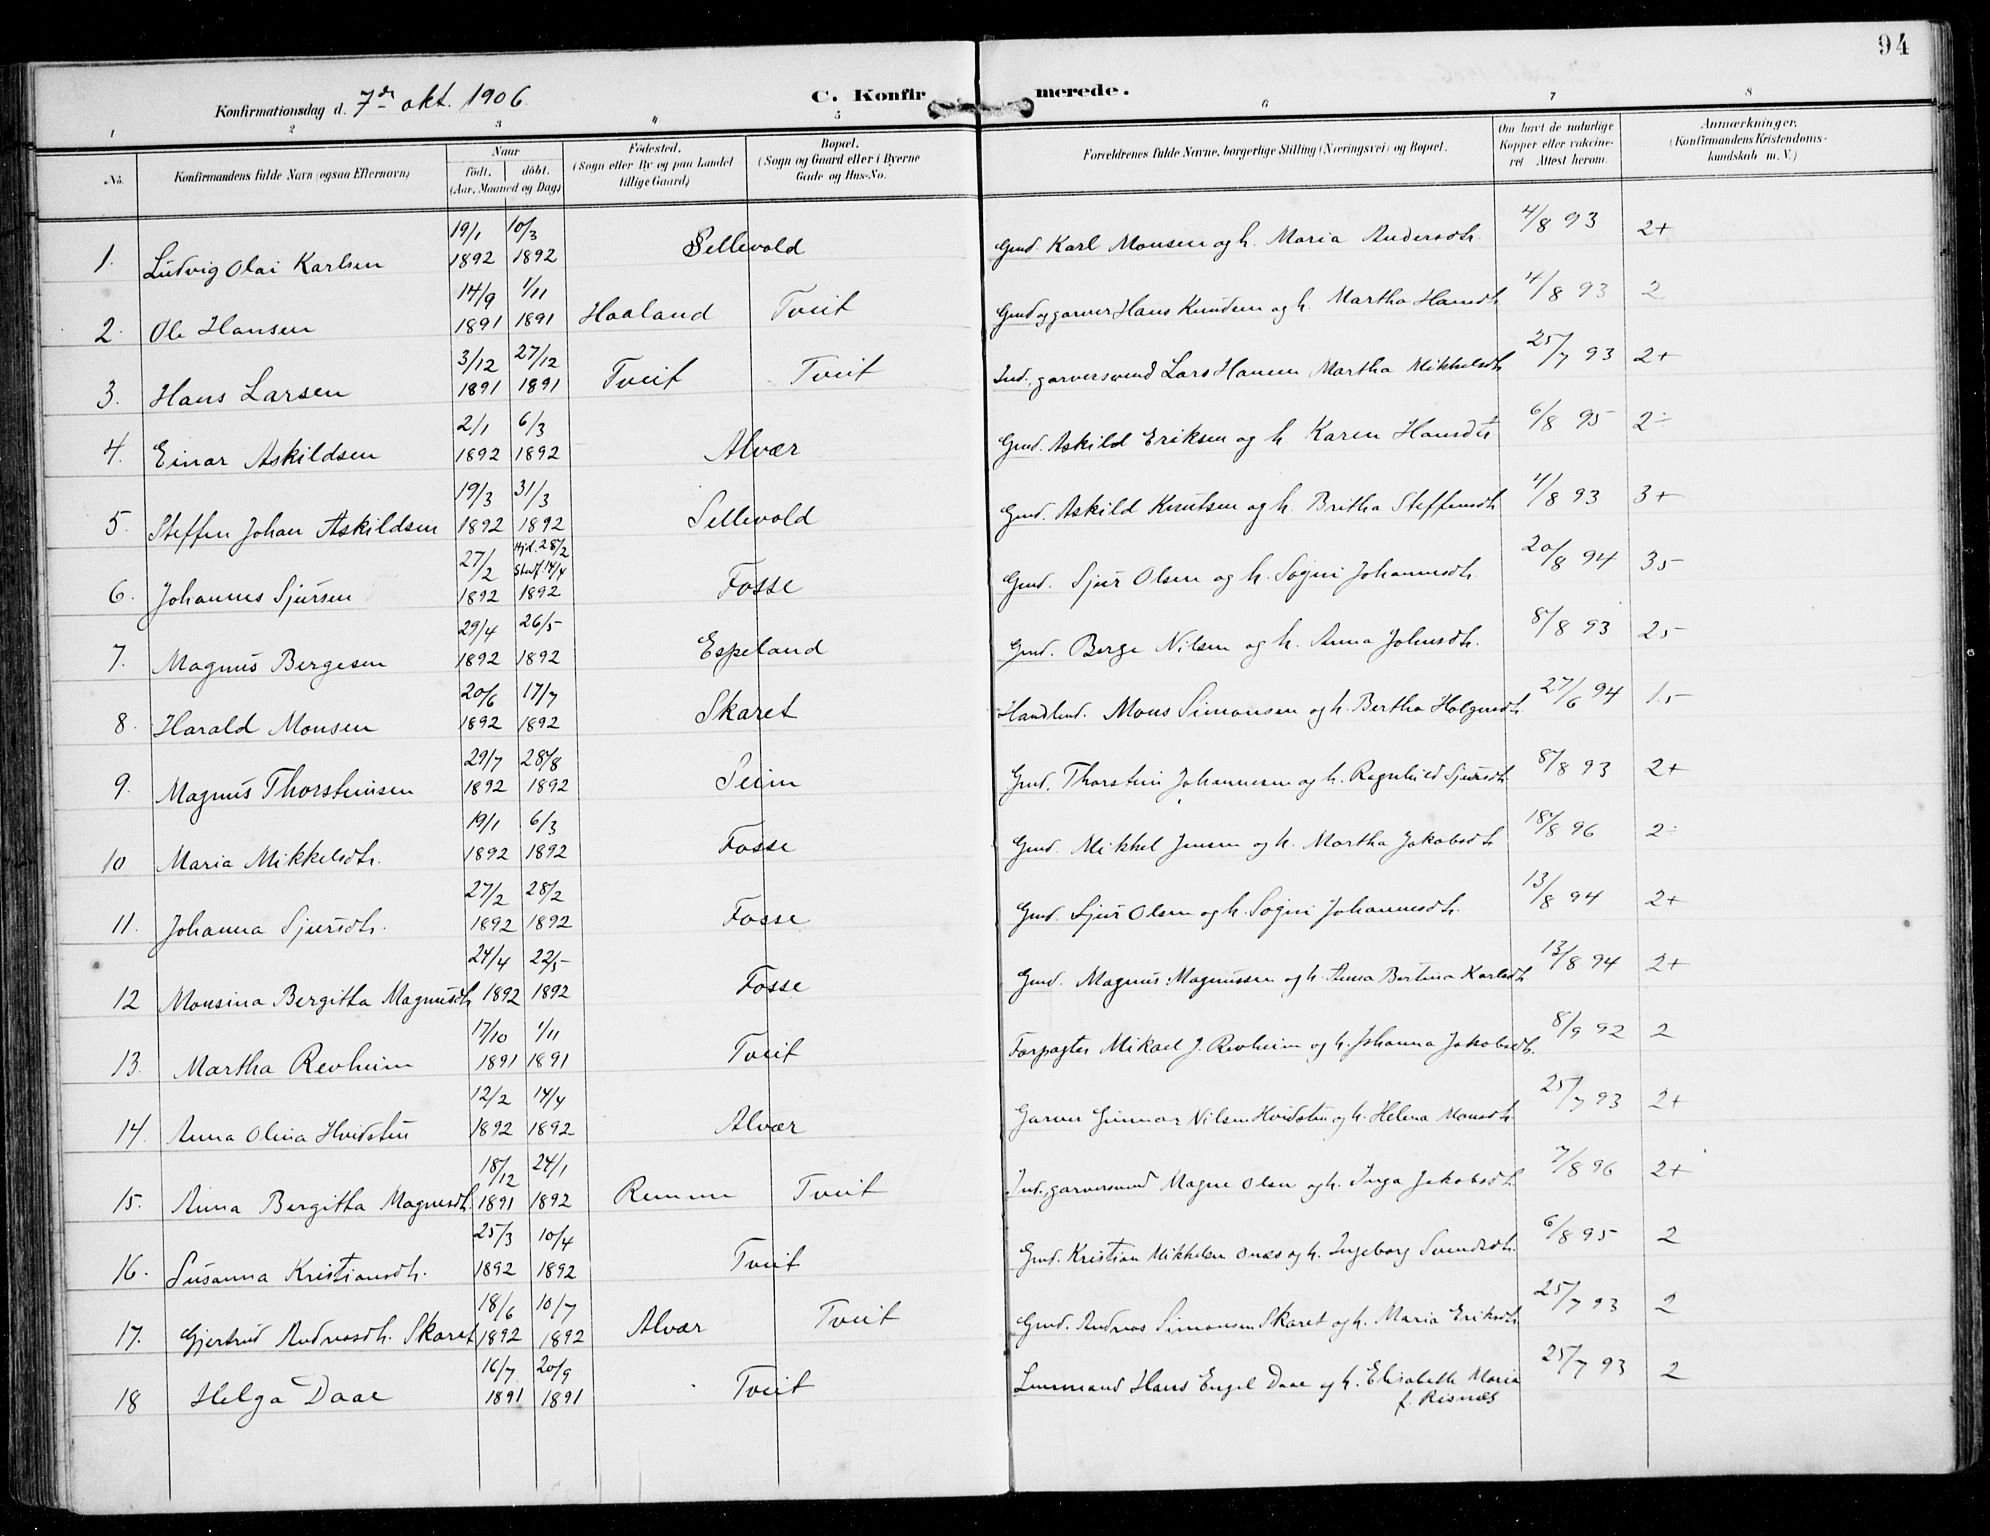 94
Konfirmationsdag d. 7de okt. 1906. C. Konfirmerede.
1 2 3 4 5 6 7 8
No. Konfirmandens fulde Navn (ogsaa Efternavn) Naar født, døbt. (Aar, Maaned og Dag) Fødested. (Sogn eller By og paa Landet tillige Gaard) Bopæl. (Sogn og Gaard eller i Byerne Gade og Hus-No. Forældrenes fulde Navne, borgerlige Stilling (Næringsvei) og Bopæl. Om havt de naturlige Kopper eller vakcineret Attest herom. Anmærkninger. (Konfirmandens Kristendomskundskab m. V.)
1. Ludvig Olai Karlsen 19/1 1892 10/3 1892 Sellevold Gmd. Karl Monsen og h. Maria Andersdtr. 4/8 93 2+
2. Ole Hansen 14/9 1891 1/11 1891 Haaland Tveit Gmd og garver Hans Knudsen og h. Martha Hansdtr 4/8 93 2
3. Hans Larsen 3/12 1891 27/12 1891 Tveit Tveit Ind., garversvend Lars Hansen Martha Mikkelsdtr 25/7 93 2+
4. Einar Askildsen 2/1 1892 6/3 1892 Alvær Gmd. Askild Eriksen og h. Karen Hansdtr 6/8 95 2÷
5. Steffen Johan Askildsen 19/3 1892 31/3 1892 Sellevold Gmd. Askild Knutsen og h. Britha Steffensdtr 4/8 93 3+
6. Johannes Sjursen 27/2 1892 Hjd. 28/2 Stadf. 14/4 1892 Fosse Gmd. Sjur Olsen og h. Sogni Johannesdtr. 20/8 94 3,5
7. Magnus Bergesen 29/4 1892 26/5 1892 Espeland Gmd. Berge Nilsen og h. Anna Johnsdtr. 8/8 93 2,5
8. Harald Monsen 20/6 1892 17/7 1892 Skaret Handlend. Mons Simonsen og h. Bertha Holgersdtr. 27/6 94 1.5
9. Magnus Thorsteinsen 29/7 1892 28/8 1892 Seim Gmd. Thorstein Johannesen og h. Ragnhild Sjursdtr 8/8 93 2+
10 Maria Mikkelsdtr. 19/1 1892 6/3 1892 Fosse Gmd. Mikkel Jensen og h. Martha Jakobsdtr 18/8 96 2÷
11. Johanna Sjursdtr. 27/2 1892 28/2 1892 Fosse Gmd. Sjur Olsen og h. Sogni Johannesdtr. 13/8 94 2+
12 Monsina Bergitha Magnusdtr 24/4 1892 22/5 1892 Fosse Gmd. Magnus Magnussen og h. Anna Bertina Karlsdtr 13/8 94 2+
13. Martha Revheim 17/10 1891 1/11 1891 Tveit Forpagter Mikael J. Revheim og h. Johanna Jakobsdtr. 8/9 92 2
14. Anna Olina Hvidsten 12/2 1892 14/4 1892 Alvær Garver Gunnar Nilsen Hvidsten og h. Helena Monsdtr 25/7 93 2+
15. Anna Bergitha Magnesdtr. 18/12 1891 24/1 1892 Remme Tveit Ind., garversvend Magne Olsen og h. Inga Jakobsdtr 7/8 96 2+
16. Susanna Kristiansdtr. 25/3 1892 10/4 1892 Tveit Gmd. Kristian Mikkelsen Onæs og h. Ingeborg Svendsdtr. 6/8 95 2
17. Gjertrud Andreasdtr. Skaret 18/6 1892 10/7 1892 Alvær Tveit Gmd. Andreas Simonsen Skaret og h. Maria Eriksdtr 25/7 93 2
18 Helga Daae 16/7 1891 20/9 1891 Tveit Lensmand Hans Engel Daae og h. Elisabeth Maria 25/7 93 2
f. Risnæs